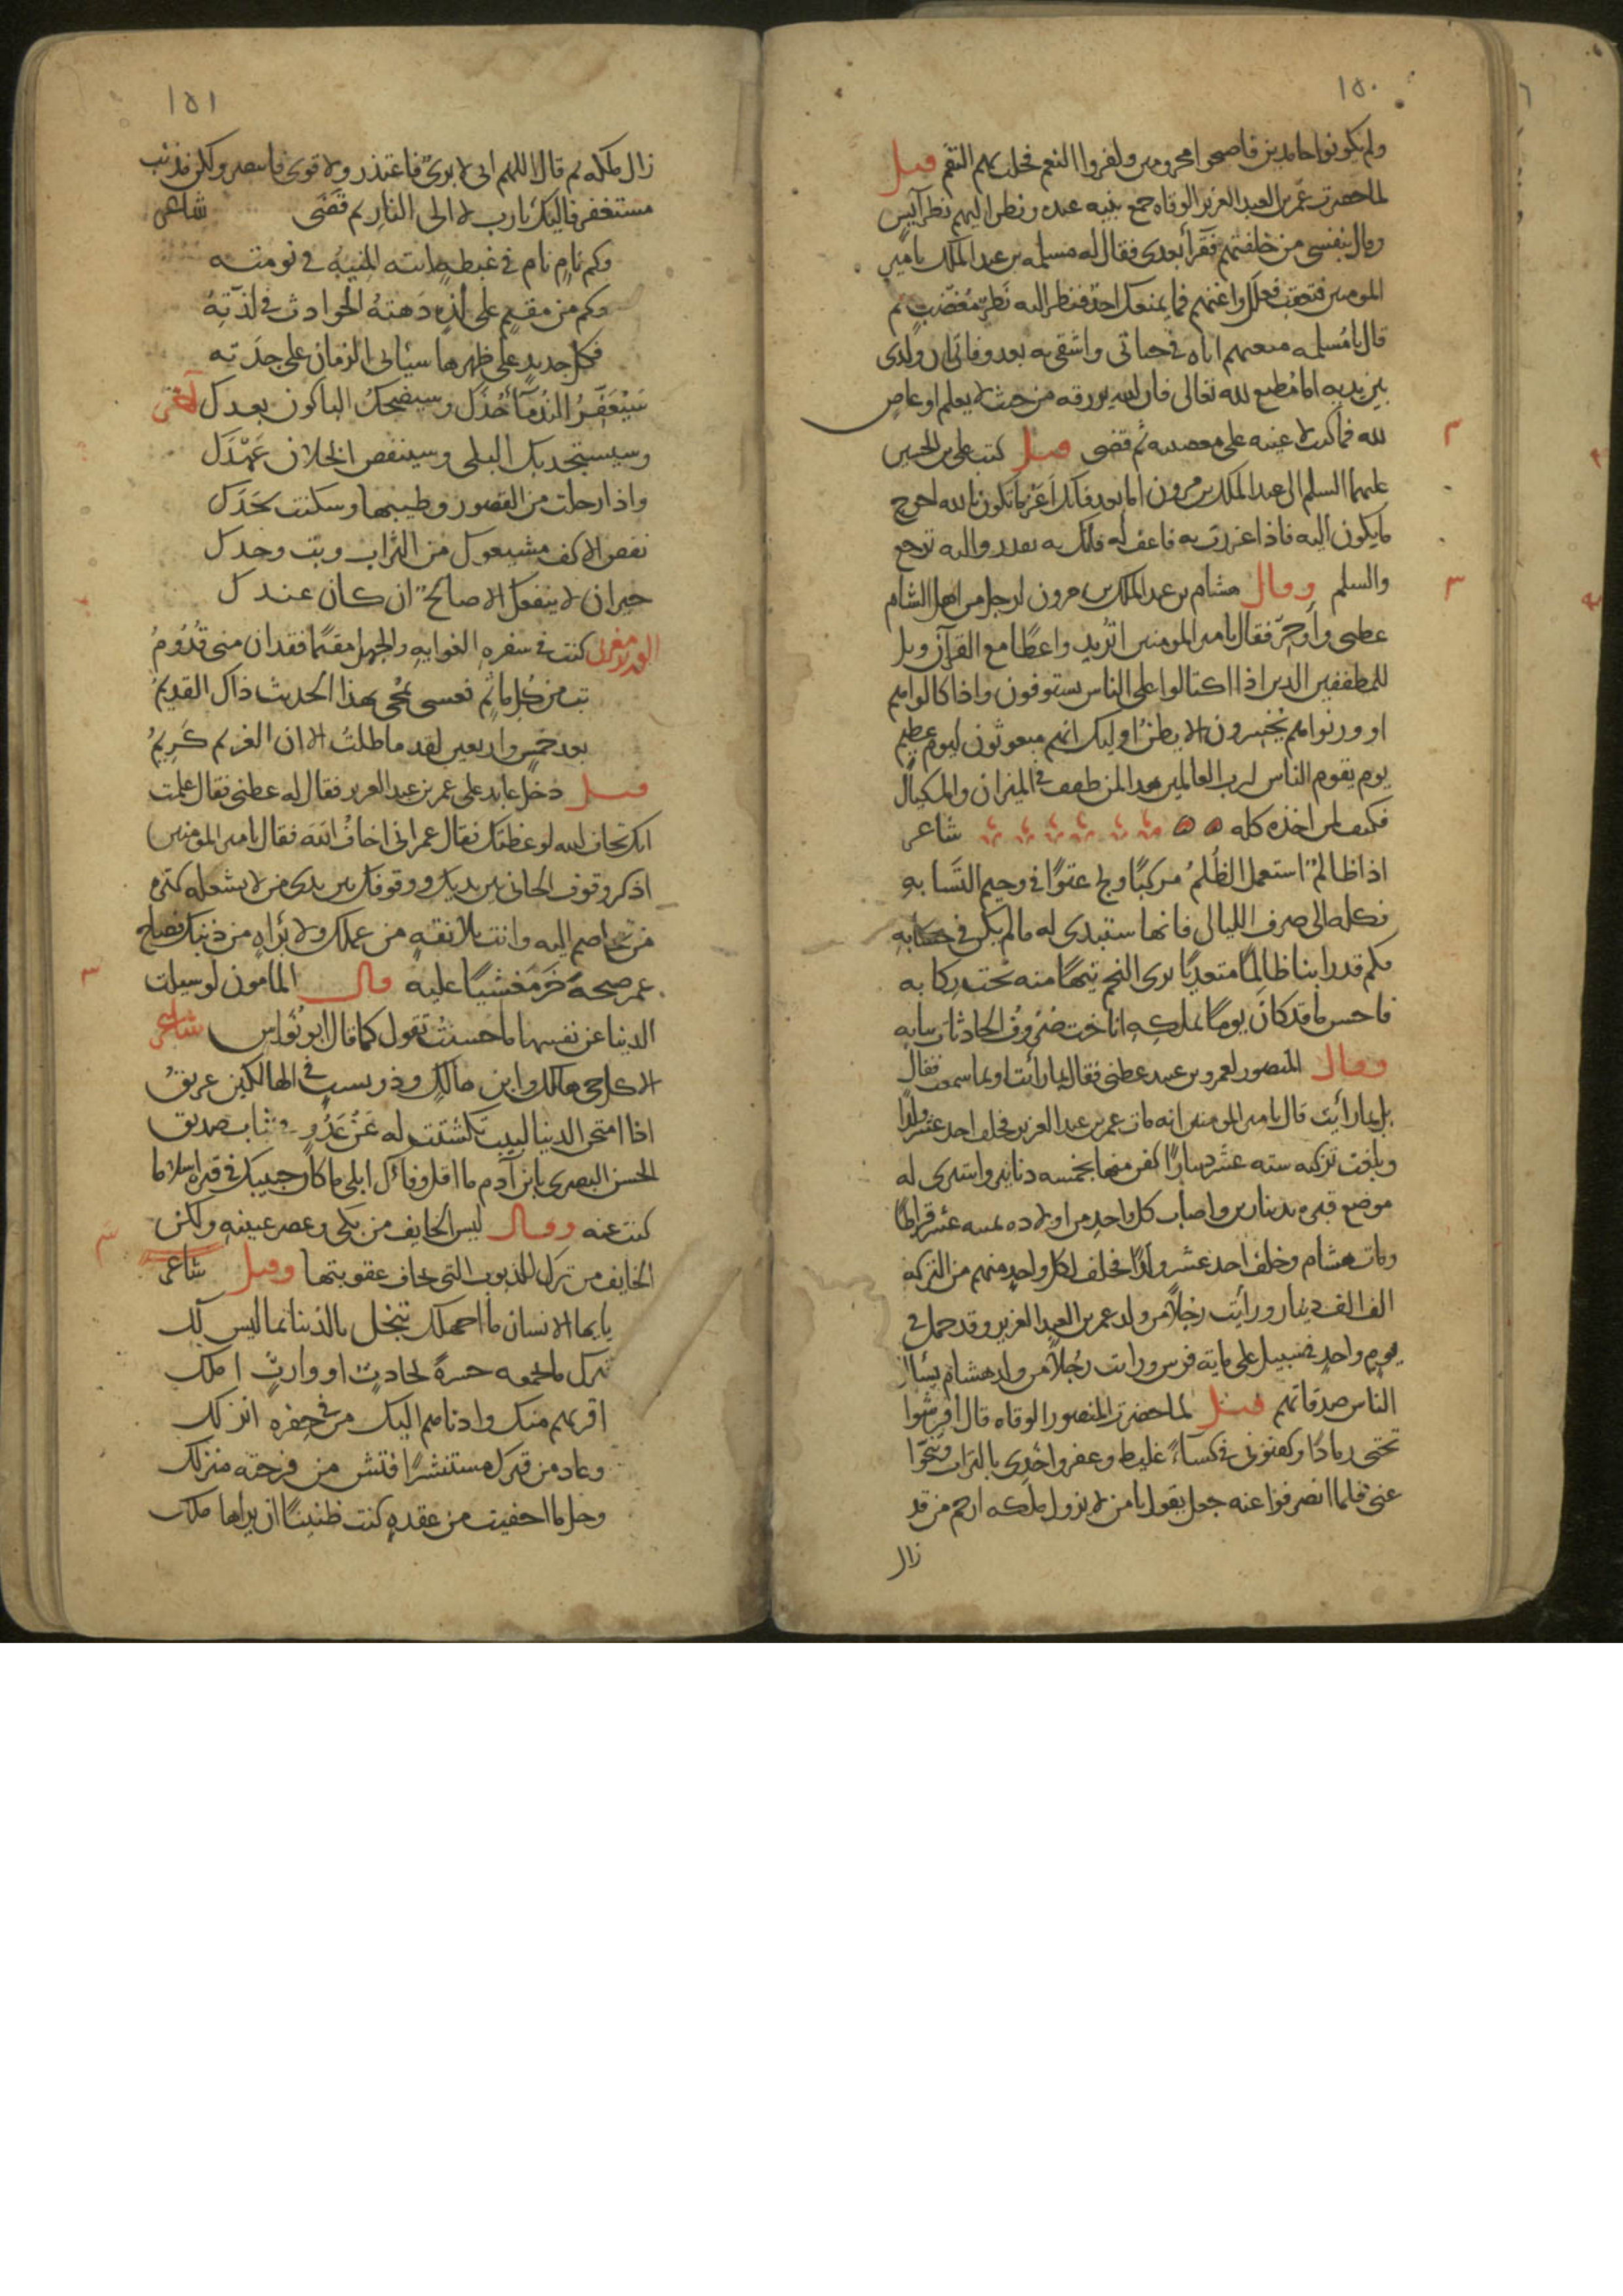 ١٥٠
ولم يكونوا حامدين فاصبحوا محرومين وكفروا النعم فحلت بهم النقم قيل
لما حضرت عمر بن العبد العزيز الوفاه جمع بنيه عنده ونظر اليهم نظر آيس
وقال بنفسي من خلفتهم فقرأ بعدي فقال له مسلمه بن عبد الملك يا مير
المومنين فتعقب فعلك واغنهم فما يمنعك احد فنظر اليه نظر مغضب ثم
قال يا مسلمه منعتهم اياه في حياتي واشقى به بعد وفاتي ان ولدي
بين يديه اما مطيع لله تعالى فان الله يرزقه من حيث لا يعلم او عاص
لله فما كنت لاعينه على معصيته ثم قضى قيل كتب علي بن الحسين
عليهما السلم الى عبد الملك بن مرون اما بعد فانك اعز ما تكون بالله احوج
ما يكون اليه فاذا عززت به فاعف له فانك به تقدر واليه ترجع
والسلم وقال هشام بن عبد الملك بن مرون لرجل من اهل الشام
عظني واوجز فقال يامير المومنين اتريد واعظا مع القرآن ويل
للمطففين الدين اذا اكتالوا على الناس يستوفون واذا كالوا هم
او وزنوا هم يخسرون الا يظن اوليك انهم مبعوثون ليوم عظيم
يوم يقوم الناس لرب العالمين هدا لمن طفف في الميزان والمكيال
فكيف لمن اخذه كله شاعر
اذا ظالم استعمل الظلم مركبا ولج عتوا في وحيم اكتسابه
فكله الى صرف الليالي فانها ستبدي له مالم يكن في حسابه
فكم قد راينا ظالما متعديا يرى النجم تيها منه تحت ركابه
فاحسن ما قد كان يوما بملكه اناخت صروف الحادثات ببابه
وقال المنصور لعمرو بن عبيد عظني فقال بما رأيت او بما سمعت فقال
بل بما رأيت قال يامير المومنين انه مات عمر بن عبد العزيز فخلف احد عشر ولدا
وبلغت تركته سته عشر دينارا كفن منها بخمسه دنانير واشترى له
موضع قبره بدينارين واصاب كل واحد من اولاده تسعه عشر قراطا
ومات هشام وخلف احد عشر ولدا فخلف لكل واحد منهم من التركه
الف الف دينار ورأيت رجلا من ولد عمر بن العبد العزيز وقد حمل في
يوم واحد في سبيل على مايه فرس ورايت رجلا من ولد هشام يسأل
الناس صدقاتهم قيل لما حضرت المنصور الوفاه قال افرشوا
تحتي رمادا وكفنوني في كساء غليظ وعفروا خدي بالتراب وتنحوا
عني فلما انصرفوا عنه جعل يقول يا من لا يزول ملكه ارحم من قد
زال
١٥١
زال ملكه ثم قال اللهم اني لا بريء فاعتذر ولا قوي فانتصر ولكن مذنب
مستغفر فاليك يا رب لا الى النار ثم قضى شاعر
وكم نام نام في غبطه اتته المنيه في نومته
وكم من مقيم على لذه دهته الحوادث في لذته
فكل جديد على ظهرها سيأتي الزمان على جدته
سيعفر الندمآ خدك وسيضحك الباكون بعدك
وسيستجد بك البلى وسينقض الخلان عهدك
واذا رحلت من القصور وطيبها وسكنت لحدك
نفض الاكف مشيعوك من التراب وبت وحدك
حيران لا ينفعك الا صالح ان كان عندك
كنت في سفره الغوايه والجهل مقيما فقد ان مني قدوم
تبت من كل ماثم فعسى يمحى بهذا الحديث ذاك القديم
بعد خمس واربعين لقد ماطلت الا ان الغريم كريم
قيل دخل عابد على عمر بن عبد العزيز فقال له عظني فقال علمت
انك تخاف الله لوعظتك فقال عمر اني اخاف الله فقال يامير المومنين
اذكر وقوف الجاني بين يديك ووقوفك بين يدي من لا يشغله كثره
من تخاصم اليه وانت بلا ثقه من عملك ولا براه من ذنبك فصاح
عمر صيحه خر مغشيا عليه قال المامون لو سيلت
الدنيا عن نفسها ما احسنت تقول كما قال ابو نواس شاعر
الا كل حي هالك وابن هالك وذو نسب في الهالكين عريق
اذا امتحن الدنيا لبيب تكشفت له عن عدو في ثياب صديق
الحسن البصري يا بن آدم ما اقل وفائك ابلى ما كان حبيبك في قبره اسلا ما
كنت عنه وقال ليس الخايف من بكى وعصر عينيه ولكن
الخايف من ترك الذنوب التي يخاف عقوبتها وقيل شاعر
يايها الانسان ما اجهلك تبخل بالدنيا بما ليس لك
تترك ما تجمعه حسرة لحادث او وارث املك
اقربهم منك وادناهم اليك من في حفره انزلك
وعاد من قبرك مستنشرا فتش من فرحته منزلك
وحل ما اخفيت من عقده كنت ظنينا ان يراها ملك